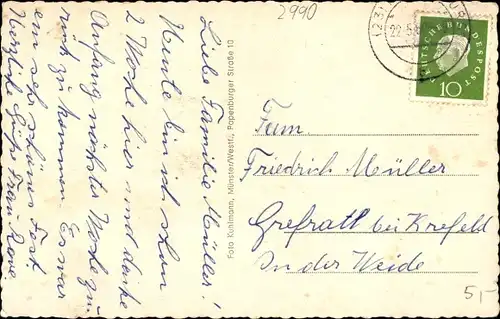 2990
Liebe Familie Müller!
Heute bin ich schon
2 Woche hier und denke
Anfang nächster Woche zu
rück zu kommen. Es war
ein sehr schönes Fest.
Herzliche Grüße Frau Rave
Foto Kuhlmann, Münster/Westf., Papenburger Straße 10
(23)
22.5.
DEUTSCHE BUNDESPOST
10
Fam.
Friedrich Müller
Grefrath bei Krefeld
In der Weide
5,-